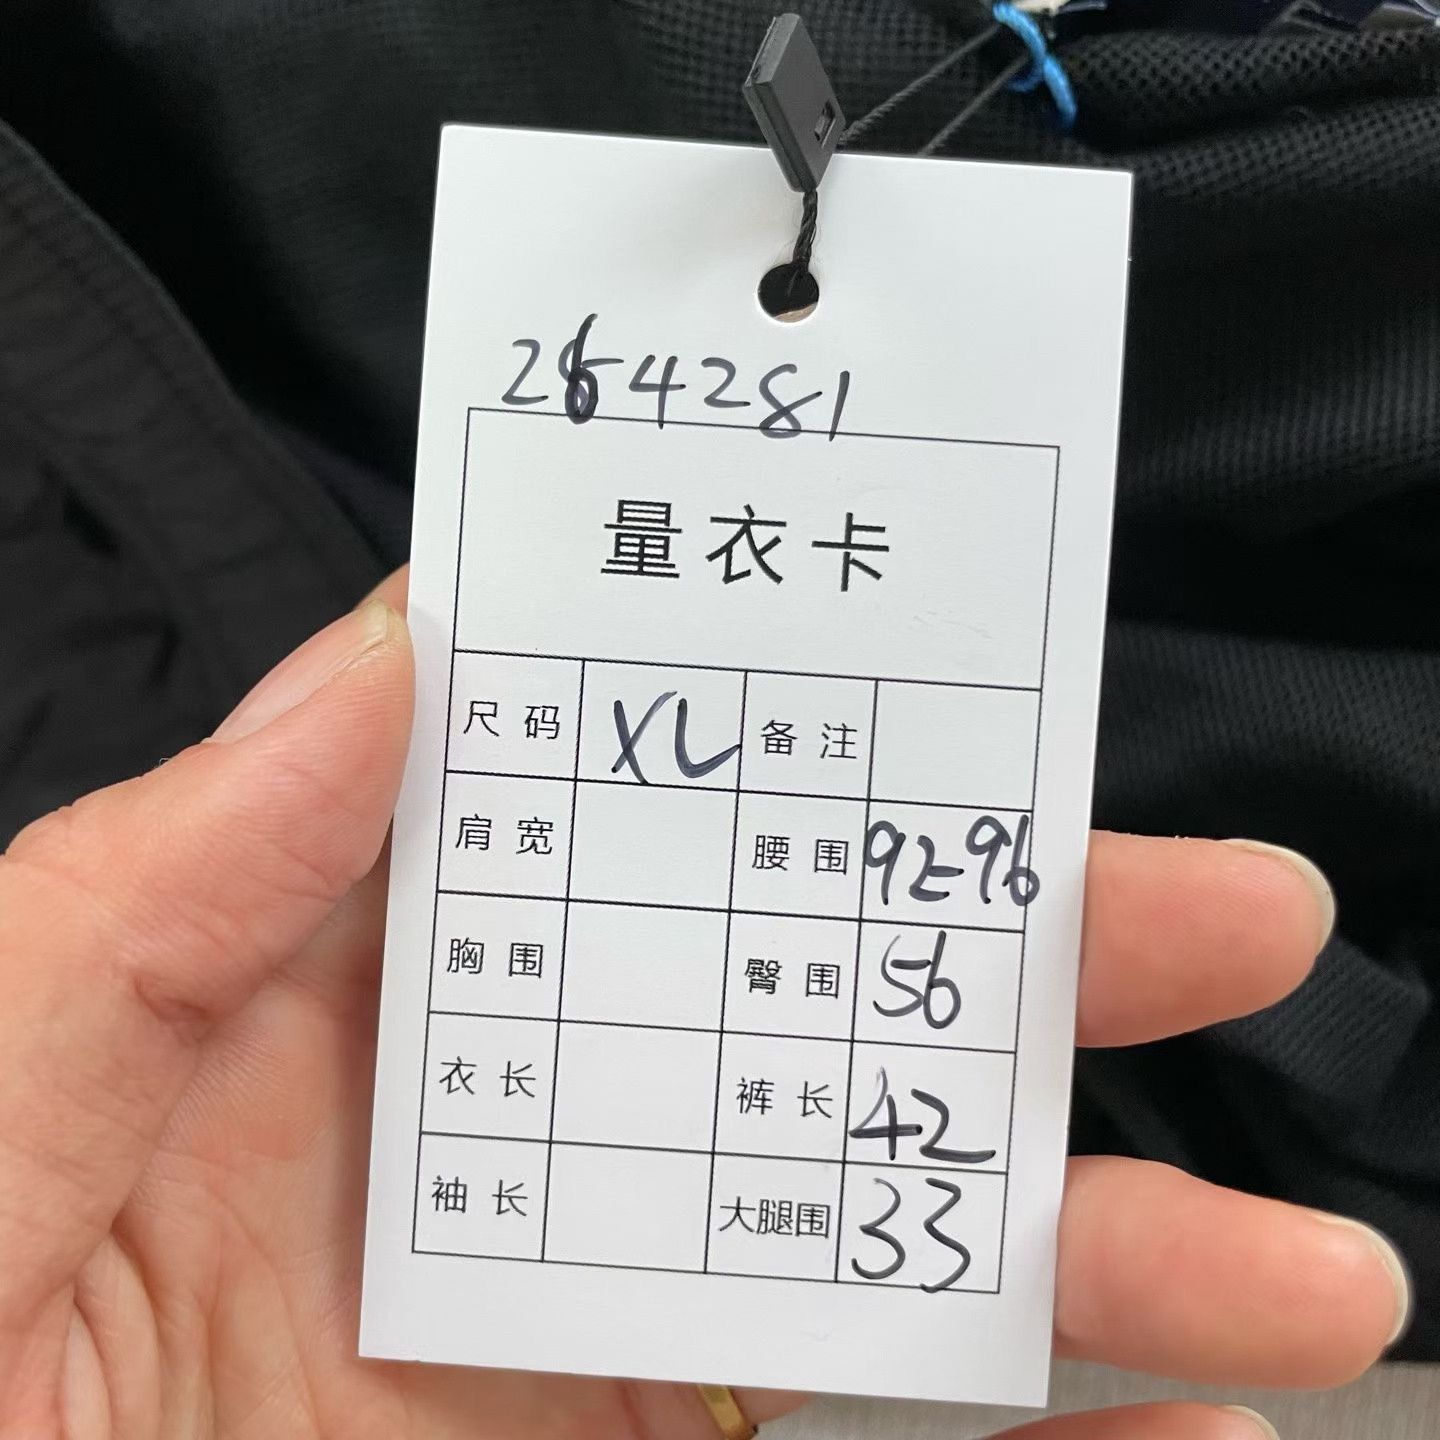 264281
量衣卡
尺码 XL 备注
肩宽 腰围 92-96
胸围 臀围 56
衣长 裤长 42
袖长 大腿围 33